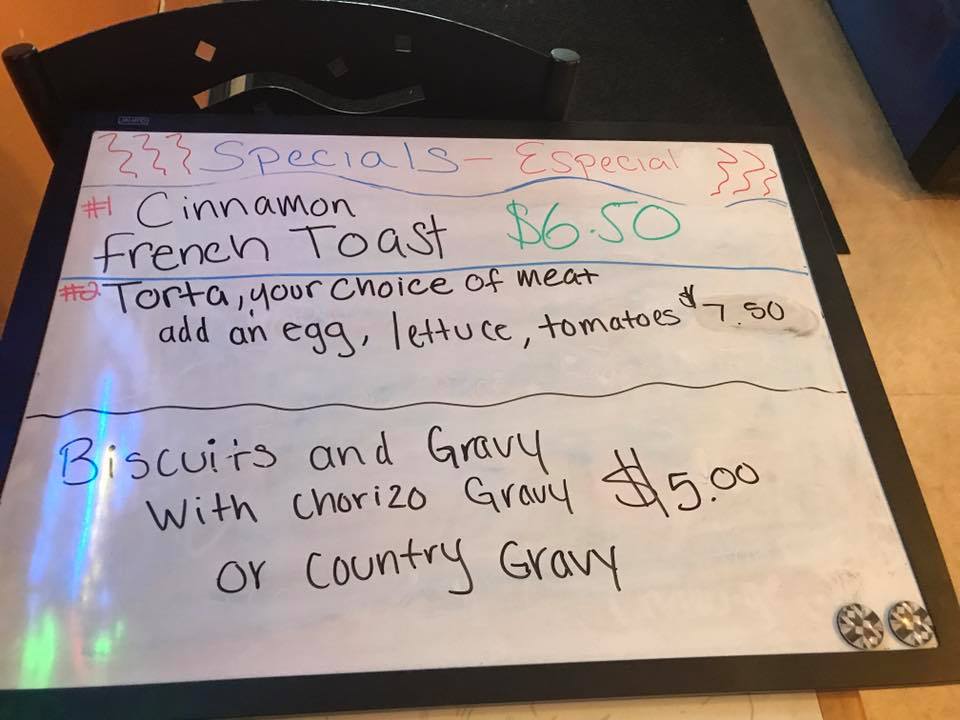 Specials - Especial
#1 Cinnamon
French Toast $6.50
#2 Torta, your choice of meat
add an egg, lettuce, tomatoes $7.50
Biscuits and Gravy
With Chorizo Gravy $5.00
or Country Gravy